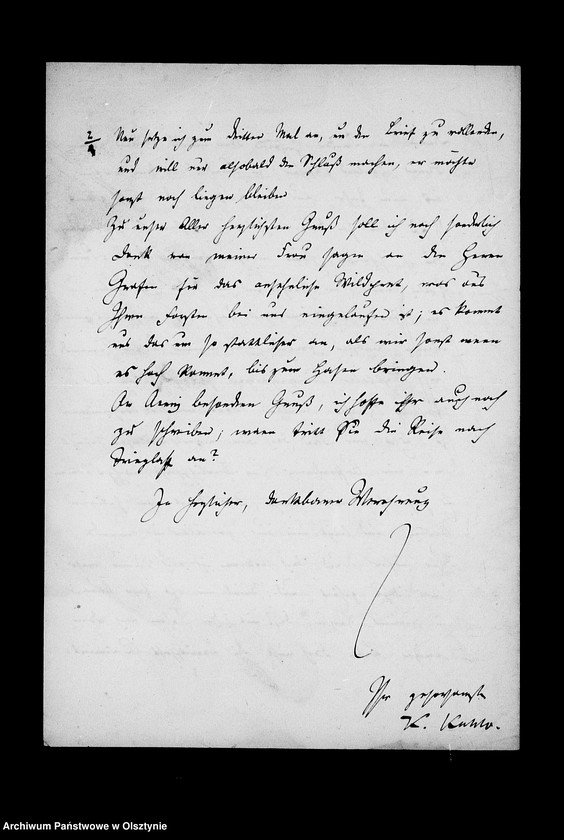 2/4 Nun setze ich zum dritten Mal an, um den Brief zu vollenden,
und will nur alsobald den Schluß machen, er möchte
sonst noch liegen bleiben
Zu unser Aller herzlichsten Gruß soll ich noch sonderlich
Dank von meiner Frau sagen an den Herrn
Grafen für das ansehnliche Wildpret, was aus
Ihren Forsten bei uns eingelaufen ist; es kommt
uns das um so stattlicher an, als wir sonst wenn
es hoch kommt, bis zum Hasen bringen.
An besondern Gruß, ich hoffe ihr auch noch
zu schreiben; wann tritt Sie die Reise nach
Trieglaff an?
In herzlicher, dankbarer Verehrung
Ihr gehorsamster
K. Kuhlo.
Archiwum Państwowe w Olsztynie